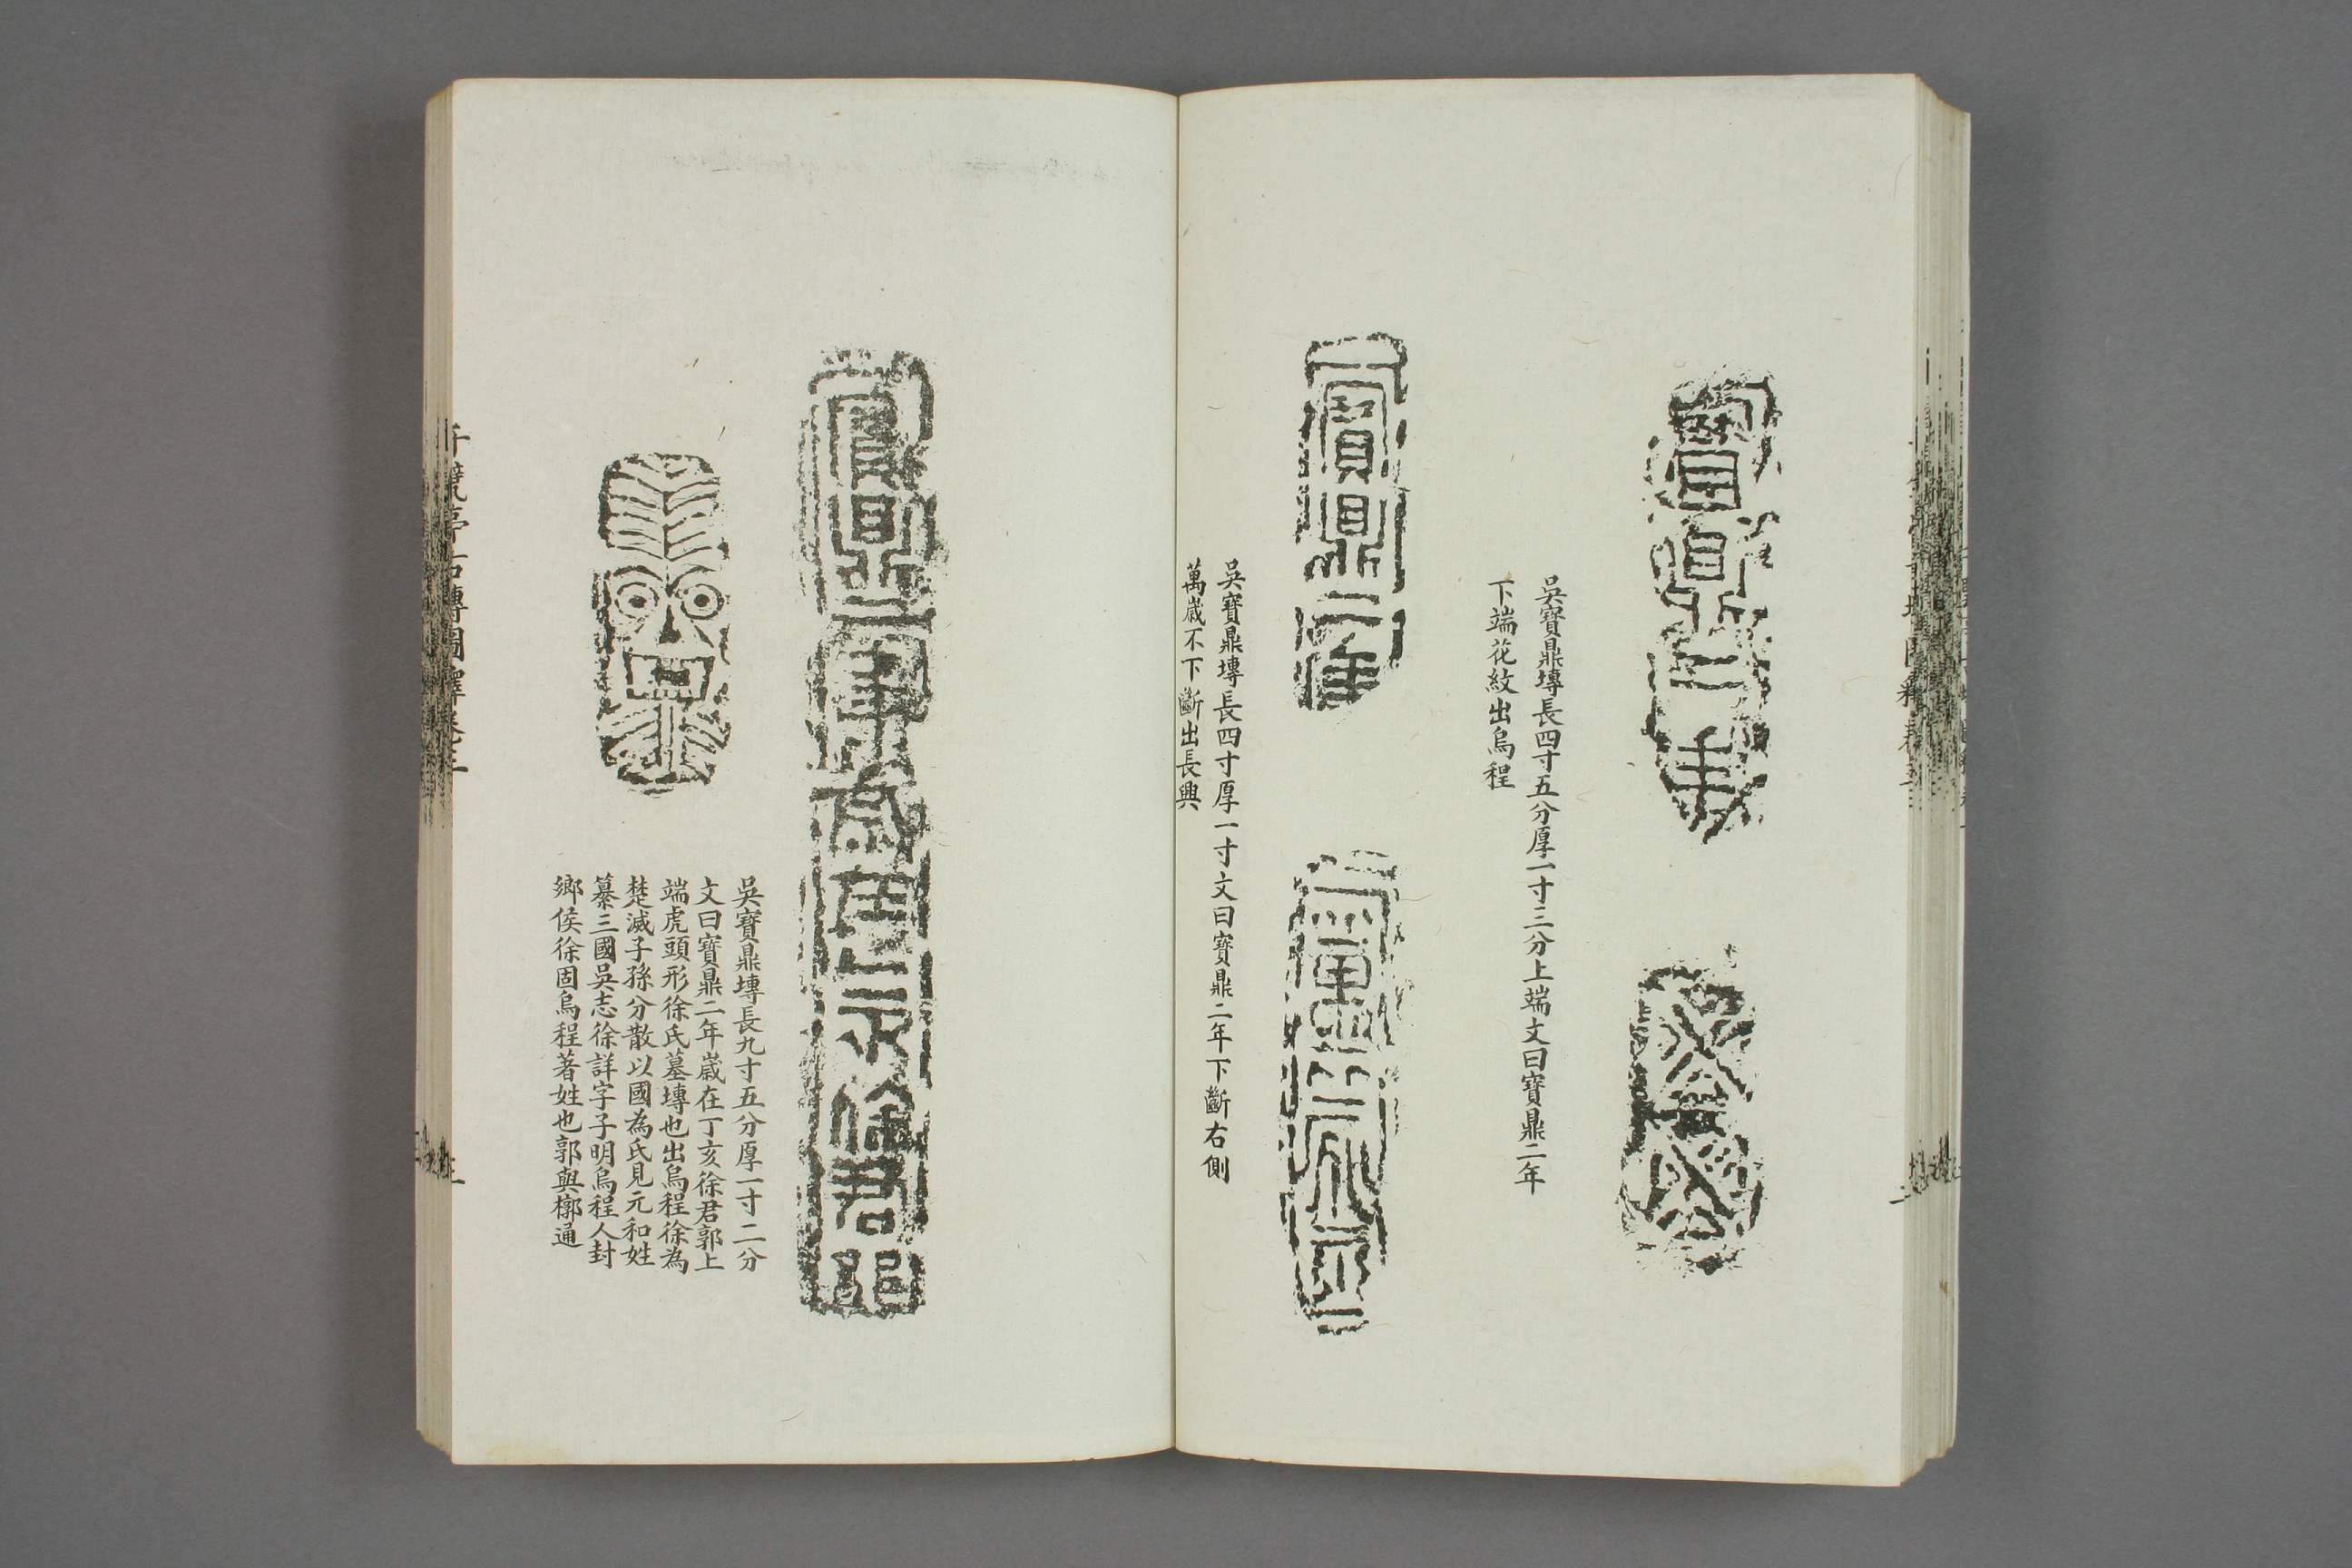 寶鼎二年
吳寶鼎塼長四寸五分厚一寸三分上端文曰寶鼎二年
下端花紋出烏程
寶鼎二年
萬歲不
吳寶鼎塼長四寸厚一寸文曰寶鼎二年下斷右側
萬歲不下斷出長興
寶鼎二年歲在丁亥徐君郭
吳寶鼎塼長九寸五分厚一寸二分
文曰寶鼎二年歲在丁亥徐君郭上
端虎頭形徐氏墓塼也出烏程徐為
楚滅子孫分散以國為氏見元和姓
纂三國吳志徐詳字子明烏程人封
鄉侯徐固烏程著姓也郭與槨通
千甓亭古塼圖釋卷三